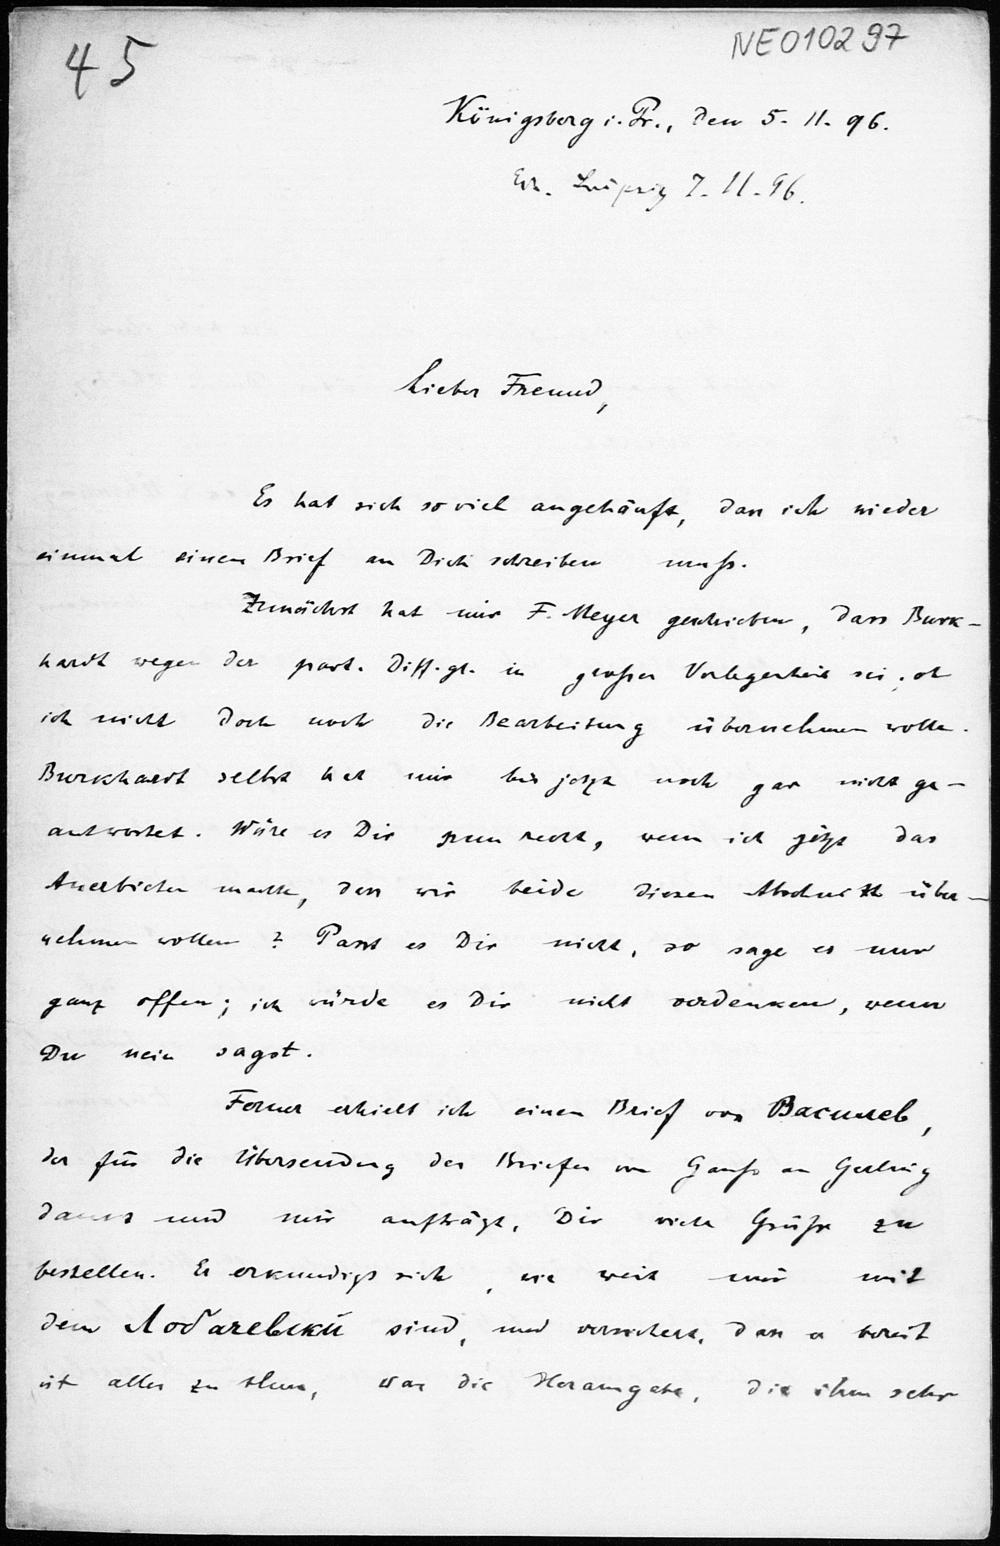 45
NE010297
Königsberg i. Pr., den 5. 11. 96.
Erh. Leipzig 7. 11. 96.
Lieber Freund,
Es hat sich so viel angehäuft, dass ich wieder
einmal einen Brief an Dich schreiben muß.
Zunächst hat mir F. Meyer geschrieben, dass Burk-
hardt wegen der part. Diff.gl. in großer Verlegenheit sei; ob
ich nicht doch noch die Bearbeitung übernehmen wolle.
Burkhardt selbst hat mir bis jetzt noch gar nicht ge-
antwortet. Wäre es Dir nun recht, wenn ich jetzt das
Anerbieten mache, dass wir beide diesen Abschnitt über-
nehmen wollen? Passt es Dir nicht, so sage es nur
ganz offen; ich würde es Dir nicht verdenken, wenn
Du nein sagst.
Ferner erhielt ich einen Brief von Васильев,
der für die Übersendung der Briefe von Gauß an Gerling
dankt und mir aufträgt, Dir viele Grüße zu
bestellen. Er erkundigt sich, wie weit wir mit
dem Лобачевскій sind, und versichert, dass er bereit
ist alles zu thun, was die Herausgabe, die ihm sehr